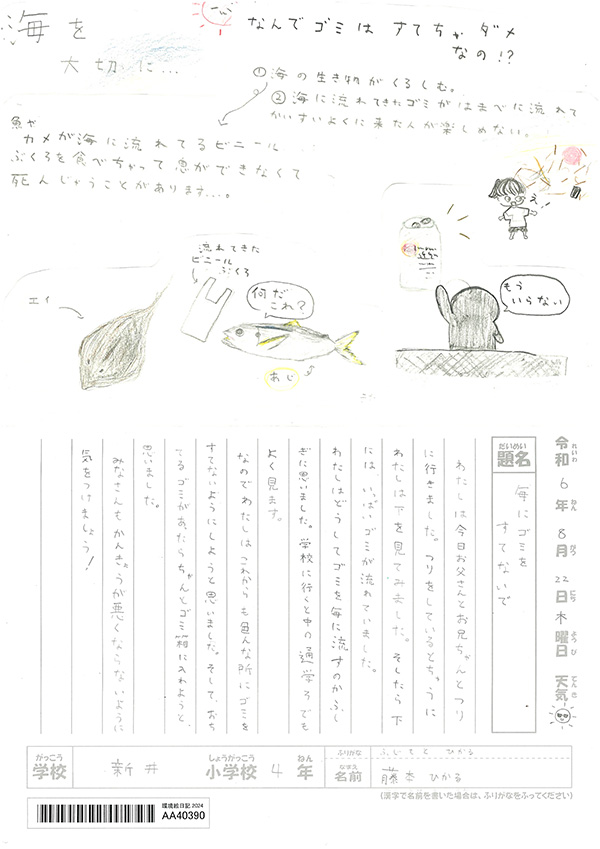 海を
大切に…
なんでゴミは すてちゃ ダメ
なの!?
①海の生き物がくるしむ。
②海に流れてきたゴミがはまべに流れて
かいすいよくに来た人が楽しめない。
魚や
カメが海に流れてるビニール
ぶくろを食べちゃって息ができなくて
死んじゃうことがあります…。
え!
流れてきた
ビニール
ぶくろ
何だ
これ?
もう
いらない
エイ
あじ
令和 6年 8月 22日 木曜日 天気
れいわ ねん がつ にち ようび てんき
だいめい
題名
海にゴミを
すてないで
わたしは今日お父さんとお兄ちゃんとつり
に行きました。つりをしているとちゅうに
わたしは下を見てみました。そしたら下
には、いっぱいゴミが流れていました。
わたしはどうしてゴミを海に流すのかふし
ぎに思いました。学校に行くと中の通学ろでも
よく見ます。
なのでわたしはこれからも色んな所にゴミを
すてないようにしようと思いました。そして、おち
てるゴミがあったらちゃんとゴミ箱に入れようと、
思いました。
みなさんもかんきょうが悪くならないように
気をつけましょう!
がっこう しょうがっこう ねん
学校 新井 小学校 4年
ふりがな ふじもと ひかる
なまえ
名前 藤本 ひかる
(漢字で名前を書いた場合は、ふりがなをふってください)
環境絵日記 2024
AA40390